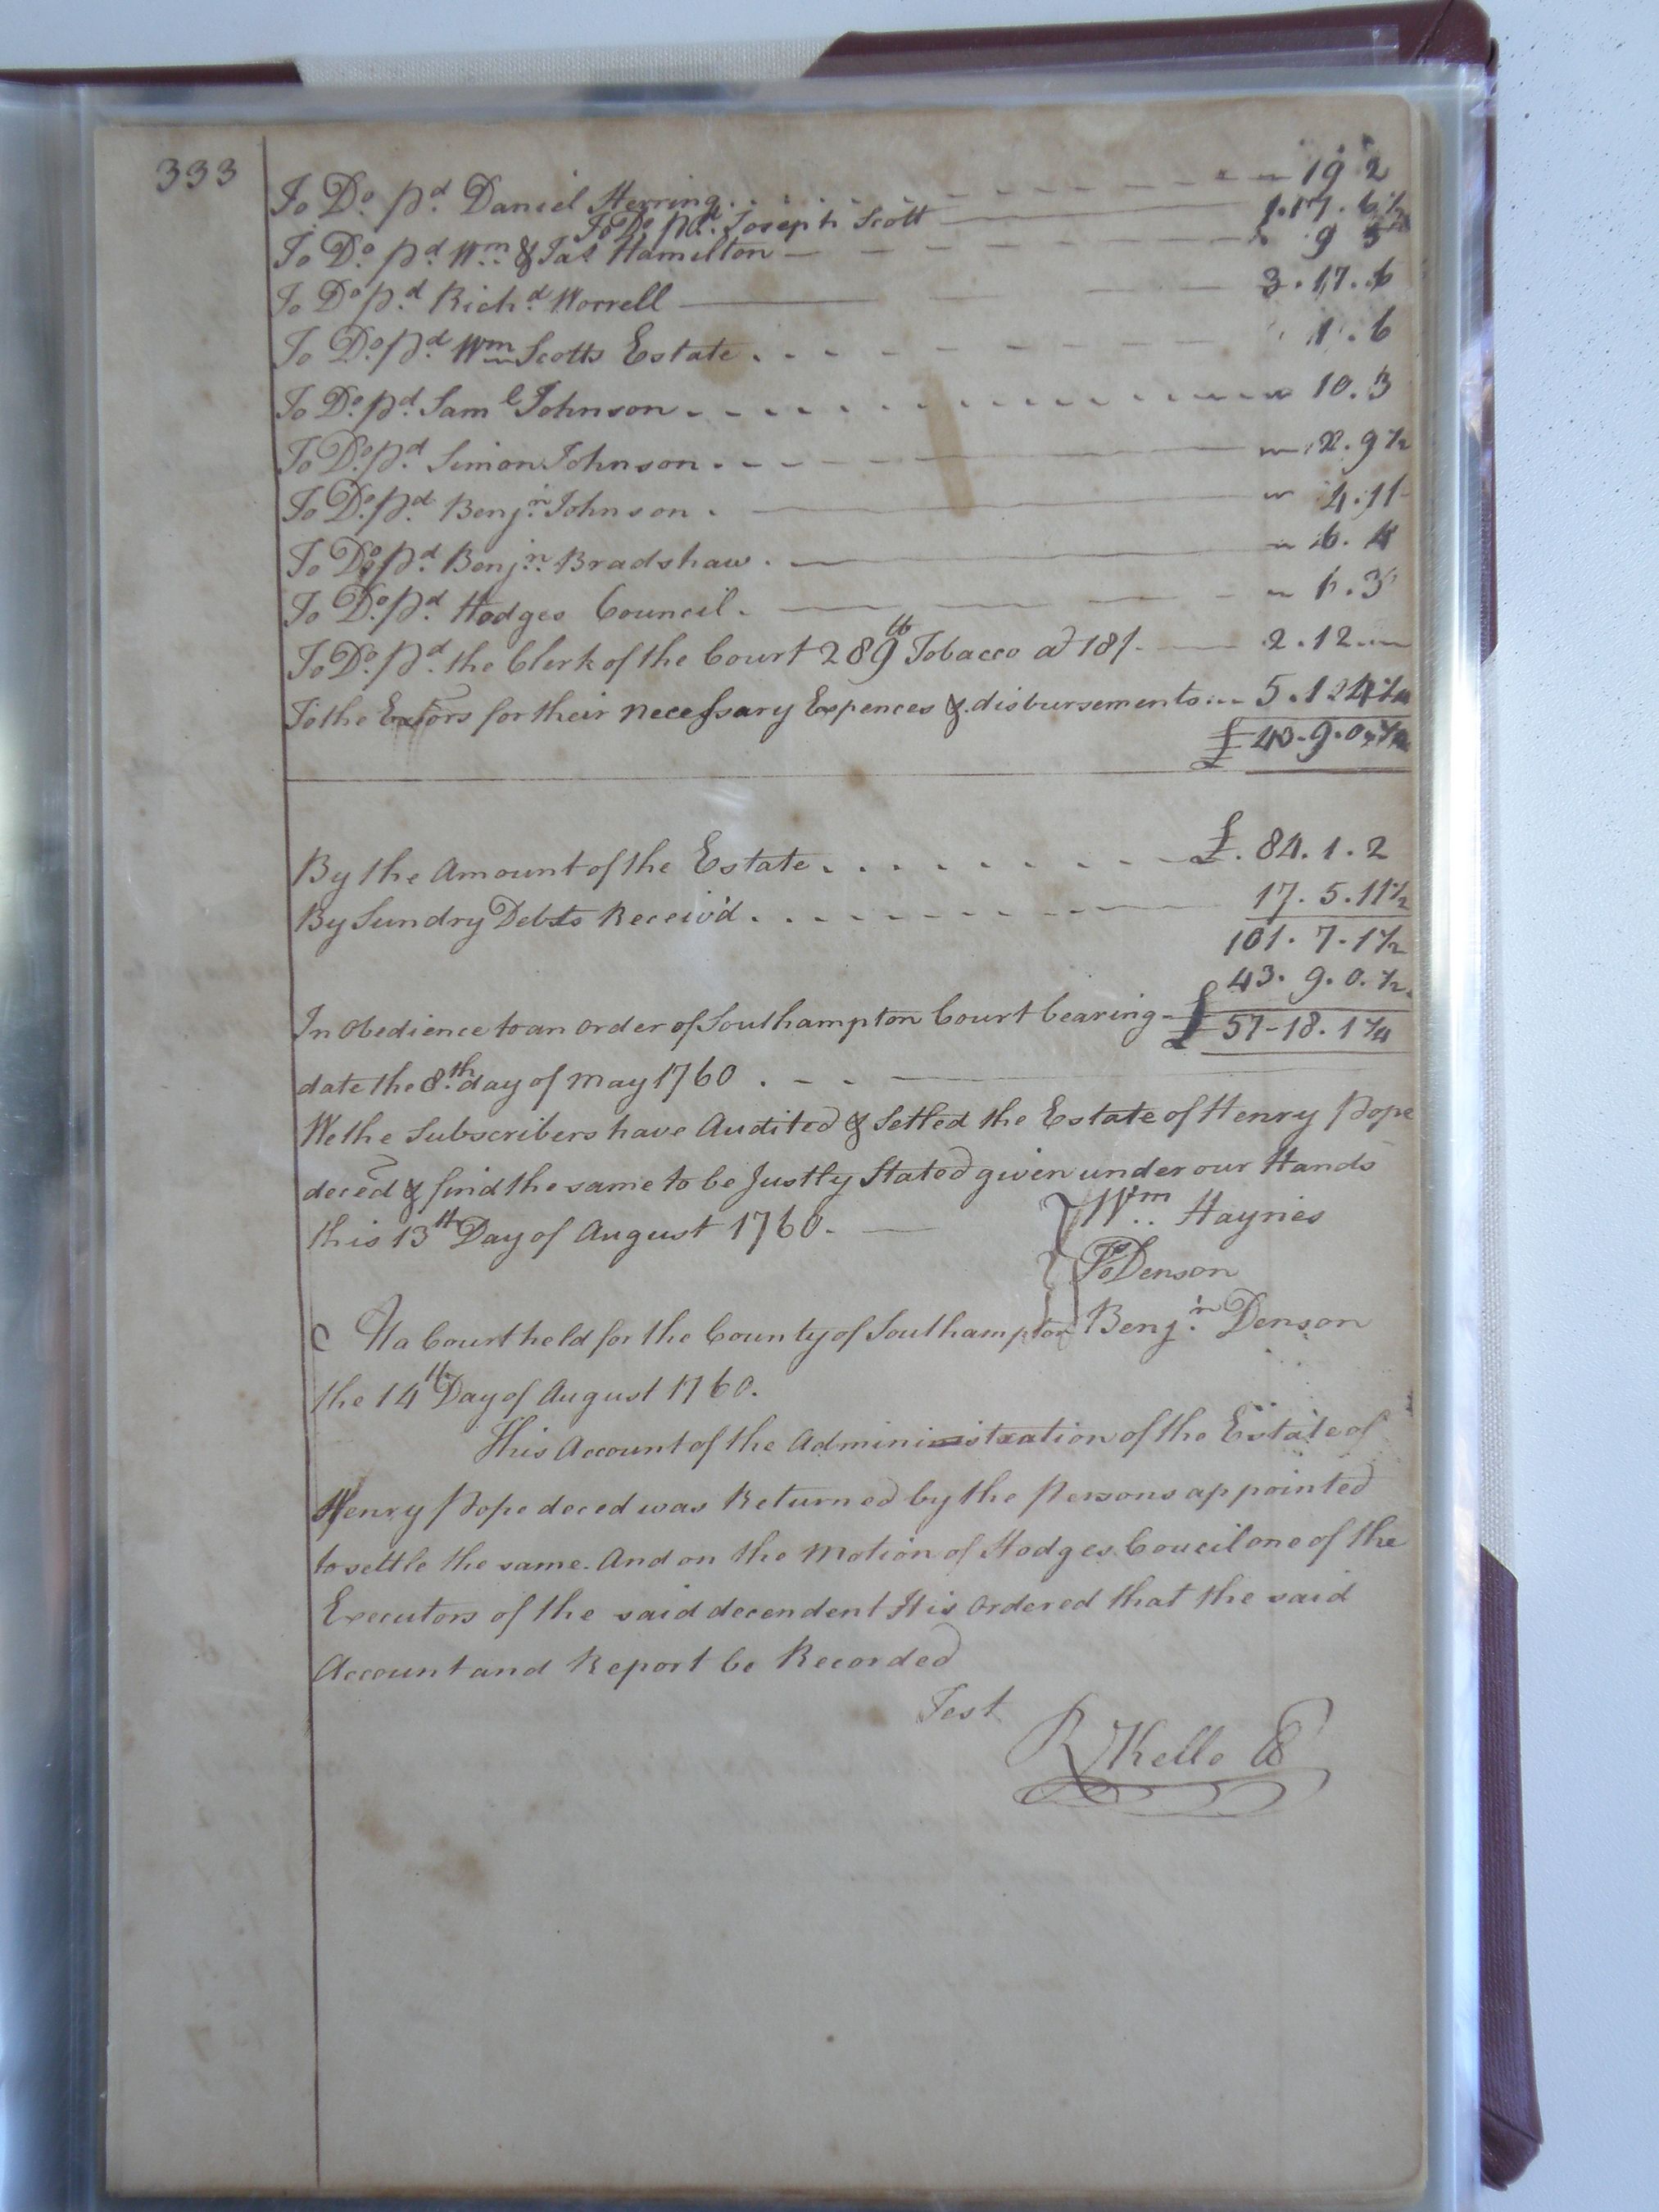 333
To Do. pd. Daniel Herring . . . . 19 2
To Do pd. Joseph Scott 1.17.6½
To Do. pd. Wm. & Jas. Hamilton 9 5
To Do pd Richd. Worrell 3.17.6
To Do. pd. Wm Scotts Estate . . . 1.6
To Do. pd. Saml Johnson 10.3
To Do. pd. Simon Johnson 9½
To Do. pd. Benjn. Johnson . 4.11
To Do. pd. Benjn. Bradshaw . 6.
To Do. pd. Hodges Council . .3
To Do. pd. the Clerk of the Court 289 lb Tobacco at 18/. 2.12
To the Exors for their necessary Expences & disbursements 5.12
£ 43.9.0
By the Amount of the Estate . . . £. 84.1.2
By Sundry Debts Receiv'd . . . 17.5.11½
101.7.1½
43.9.0.½
In Obedience to an order of Southampton Court bearing £ 57-18.1
date the 8th. day of May 1760 . - -
We the Subscribers have Audited & Setled the Estate of Henry Pope
deced & find the same to be Justly Stated given under our Hands
this 13th Day of August 1760. Wm. Haynes
Jos Denson
C At a Court held for the County of Southampton Benjn. Denson
the 14th Day of August 1760.
This Account of the Administration of the Estate of
Henry Pope deced was Returned by the Persons appointed
to settle the same. And on the Motion of Hodges Coucil one of the
Executors of the said decendent It is Ordered that the said
Account and Report be Recorded
Test
R Kello